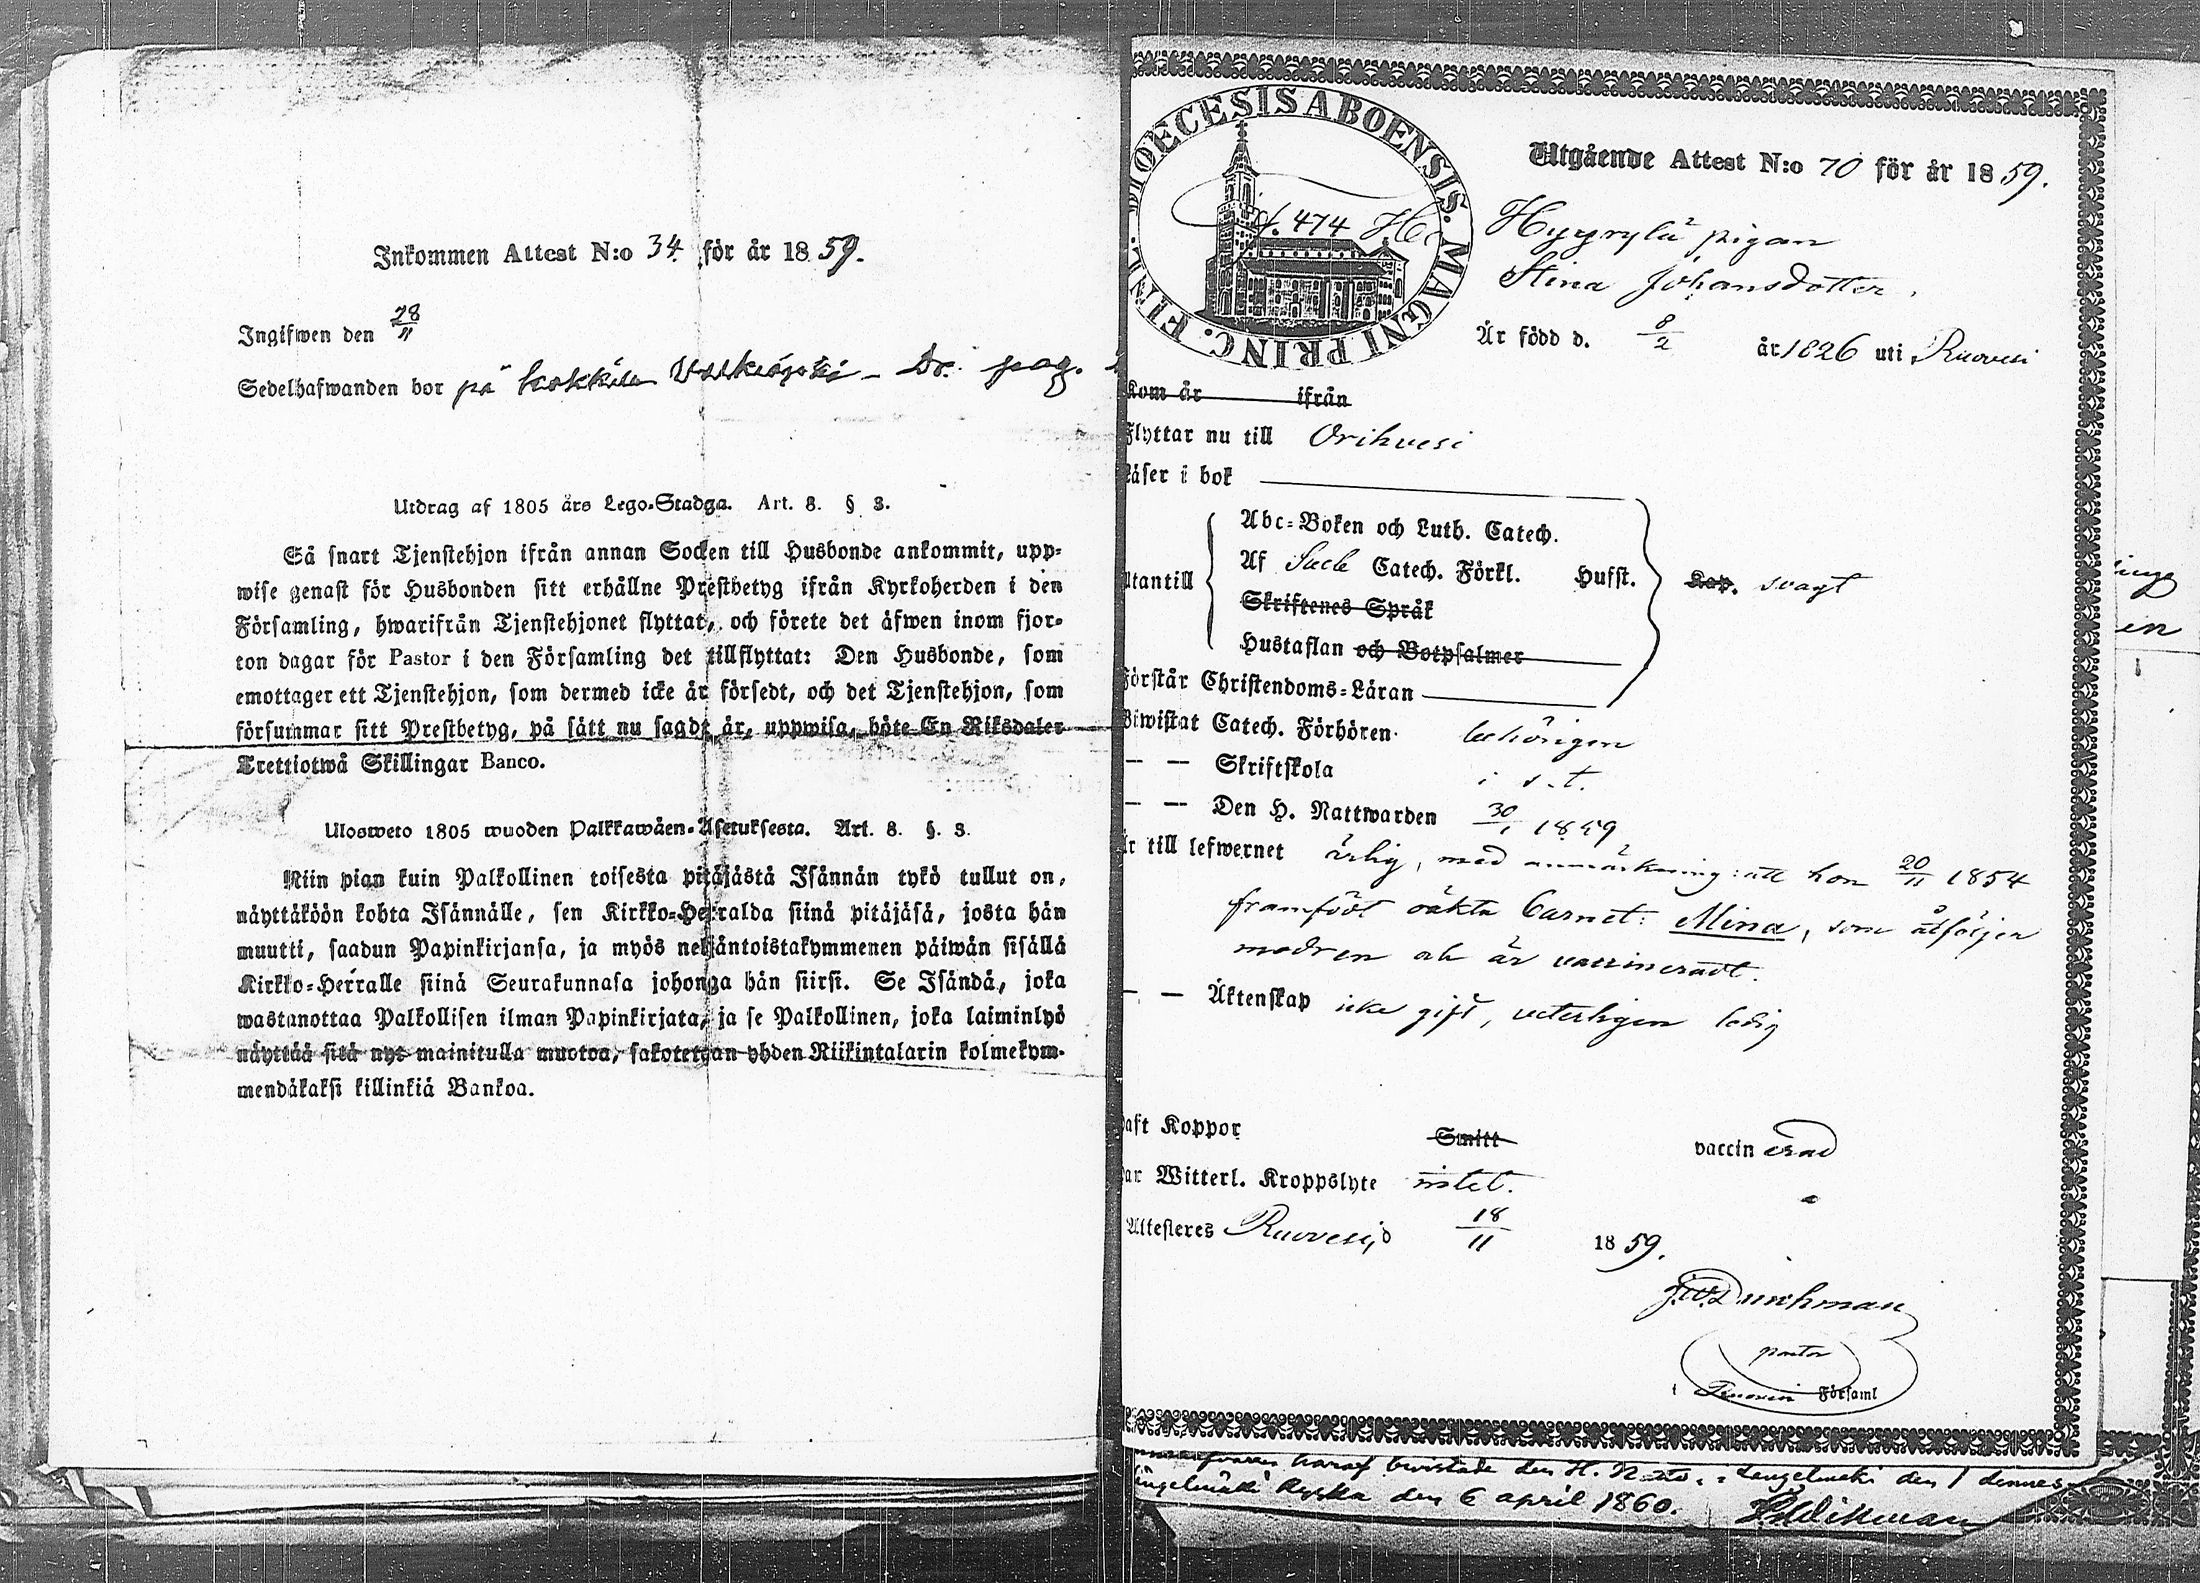 Inkommen Attest N:o 34 för år 1859.
Ingifwen den 28/11
Sedelhafwanden bor på pag.
Utdrag af 1805 års Lego-Stadga. Art. 8. § 3.
Så snart Tjenstehjon ifrån annan Socken till Husbonde ankommit, upp-
wise genast för Husbonden sitt erhållne Prestbetyg ifrån Kyrkoherden i den
Församling, hwarifrån Tjenstehjonet flyttat, och förete det äfwen inom fjor-
ton dagar för Pastor i den Församling det tillflyttat: Den Husbonde, som
emottager ett Tjenstehjon, som dermed icke är försedt, och det Tjenstehjon, som
försummar sitt Prestbetyg, på sätt nu sagdt är, uppwisa, böte En Riksdaler
Trettiotwå Skillingar Banco.
Ulosweto 1805 wuoden Palkkawäen-Asetuksesta. Art. 8. §. 3.
Niin pian kuin Palkollinen toisesta pitäjästä Isännän tykö tullut on,
näyttäköön kohta Isännälle, sen Kirkko-Herralda siinä pitäjäsä, josta hän
muutti, saadun Papinkirjansa, ja myös neljäntoistakymmenen päiwän sisällä
Kirkko-Herralle siinä Seurakunnasa johonga hän siirsi. Se Isändä, joka
wastanottaa Palkollisen ilman Papinkirjata, ja se Palkollinen, joka laiminlyö
näyttää sitä nyt mainitulla muotoa, sakotetaan yhden Riikintalarin kolmekym-
mendäkaksi killinkiä Bankoa.
DIOECESIS ABOENSIS. MAGNI PRINC. FINL.
474
Utgående Attest N:o 70 för år 1859.
Hyyrylä pigan
Stina Johansdotter.
Är född d. 8/2 år 1826 uti Ruovesi
Kom år ifrån
Flyttar nu till Orihvesi
Läser i bok
Abc-Boken och Luth. Catech.
Utantill Af Sveb Catech. Förkl. Hufst. Kap. svagt
Skriftenes Språk
Hustaflan och Botpsalmer
Förstår Christendoms-Läran
Biwistat Catech. Förhören behörigen
— — Skriftskola i s. t.
— — Den H. Nattwarden 30/ 1859
Är till lefwernet ärlig, med anmärkning: att hon 20/11 1854
framfödt oäkta barnet: Mina, som åtföljer
modren och är vaccineradt.
— — Äktenskap icke gift, veterligen ledig
Haft Koppor Smitt vaccinerad
Har Witterl. Kroppslyte intet.
Attesteres Ruovesi, d 18/11 1859.
pastor
i Ruovesi Församl
haraf bevistade den H. den 1 dennes
Kyrka den 6 april 1860.